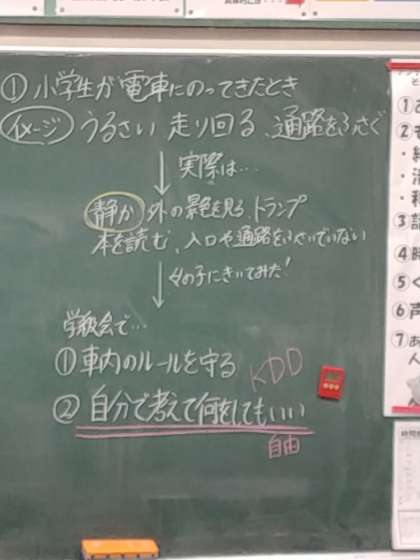 ① 小学生が電車にのってきたとき
イメージ うるさい 走り回る、通路をふさぐ
↓ 実際は…
静か 外の景色を見る、トランプ
本を読む、入口や通路をふさいでいない
↓ 女の子にきいてみた!
学級会で…
① 車内のルールを守る
KDD
② 自分で考えて何をしてもいい
自由
①
②
・
・
・
③
④
⑤
⑥ 声
⑦
人